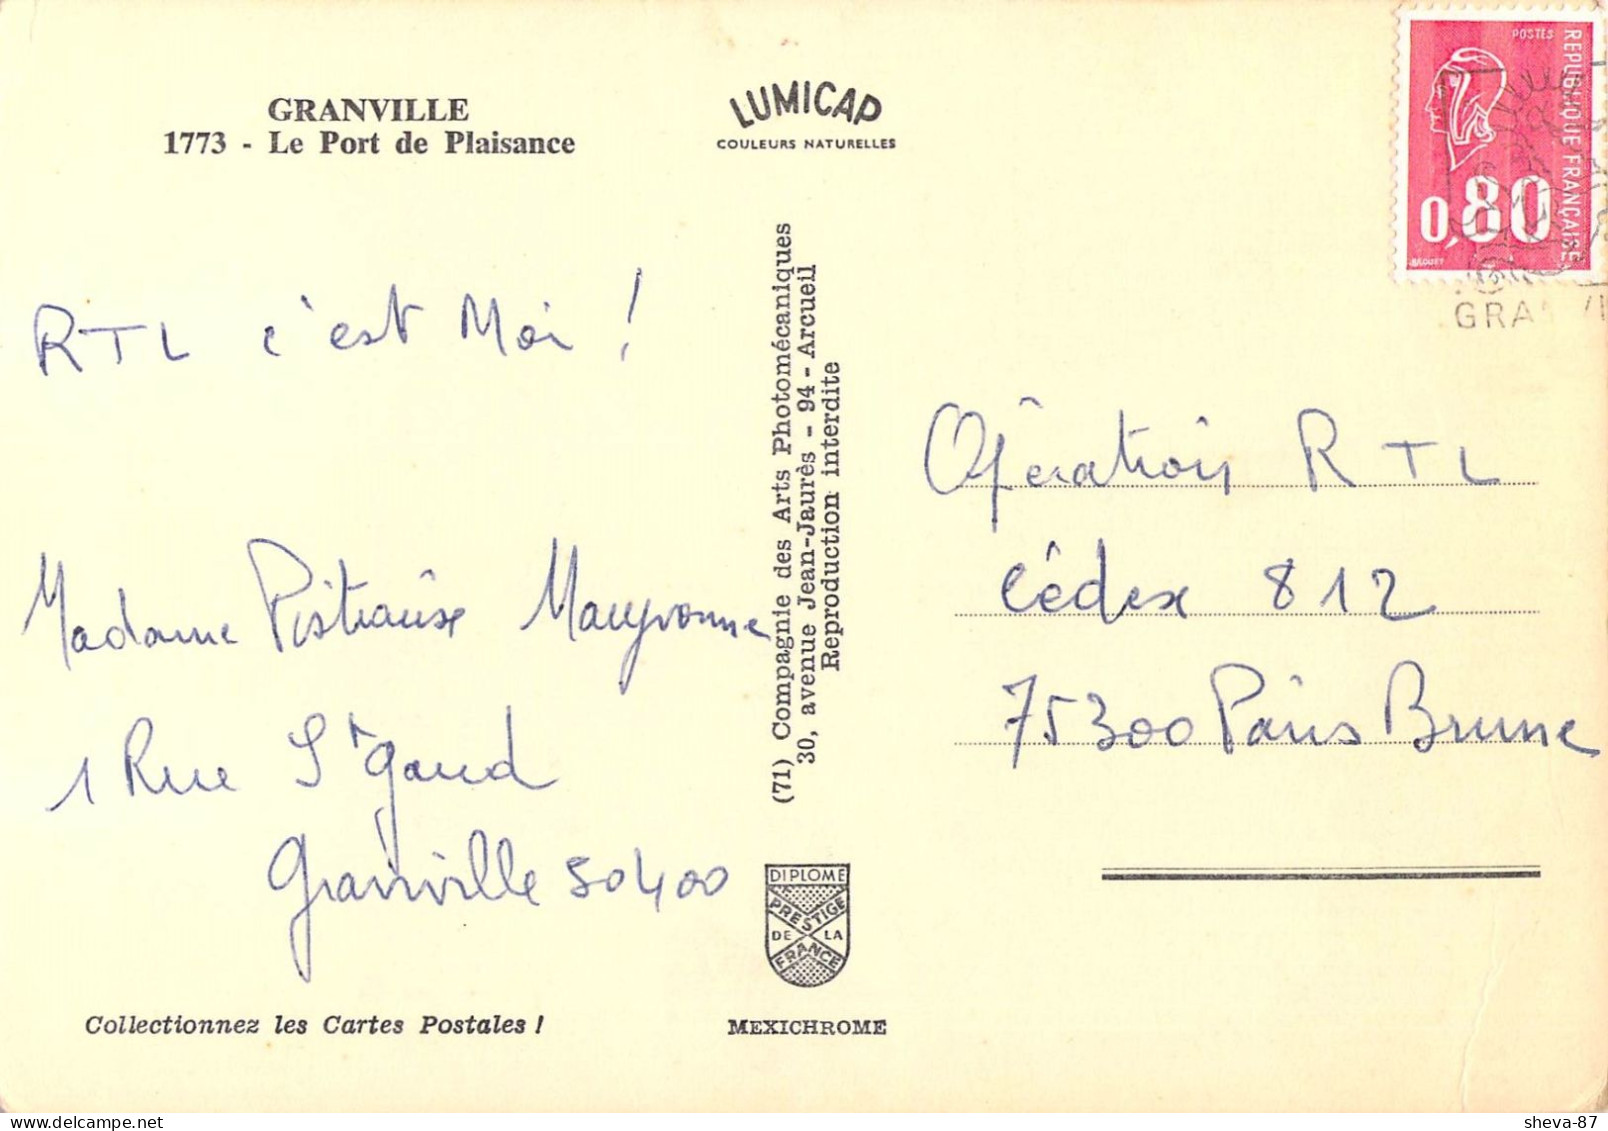 GRANVILLE
1773 - Le Port de Plaisance
LUMICAP
COULEURS NATURELLES
POSTES
REPUBLIQUE FRANÇAISE
0,80
GRA
RTL c'est Moi !
Madame Maryvonne
1 Rue St Gaud
Granville 50400
(71) Compagnie des Arts Photomécaniques
30, avenue Jean-Jaurès - 94 - Arcueil
Reproduction interdite
Opération RTL
Cédex 812
75300 Paris Brune
DIPLOME
PRESTIGE
DE LA
FRANCE
Collectionnez les Cartes Postales !
MEXICHROME
sheva-87